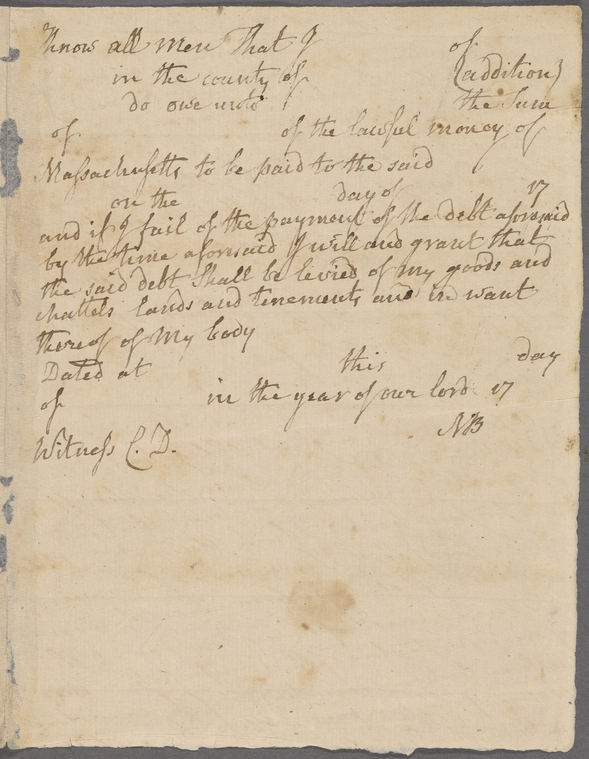 Know all men That I of
in the county of (addition)
do owe unto the Sum
of of the lawful money of
Massachusetts to be paid to the said
on the day of 17
and if I fail of the payment of the debt aforesaid
by the time aforesaid I will and grant that
the said debt Shall be levied of my goods and
chattels lands and tenements and in want
thereof of My body
Dated at this day
of in the year of our lord 17
NB
Witness C. D.